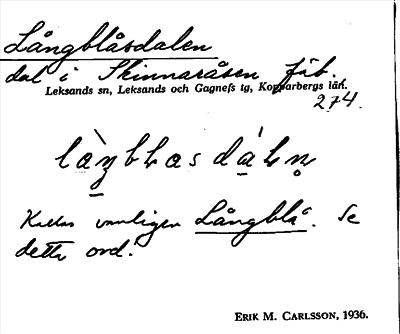 Långblåsdalen
dal i Skinnaråsen fäb.
Leksands sn, Leksands och Gagnefs tg, Kopparbergs län.
274.
Kallas vanligen Långblå. Se
detta ord.
ERIK M. CARLSSON, 1936.